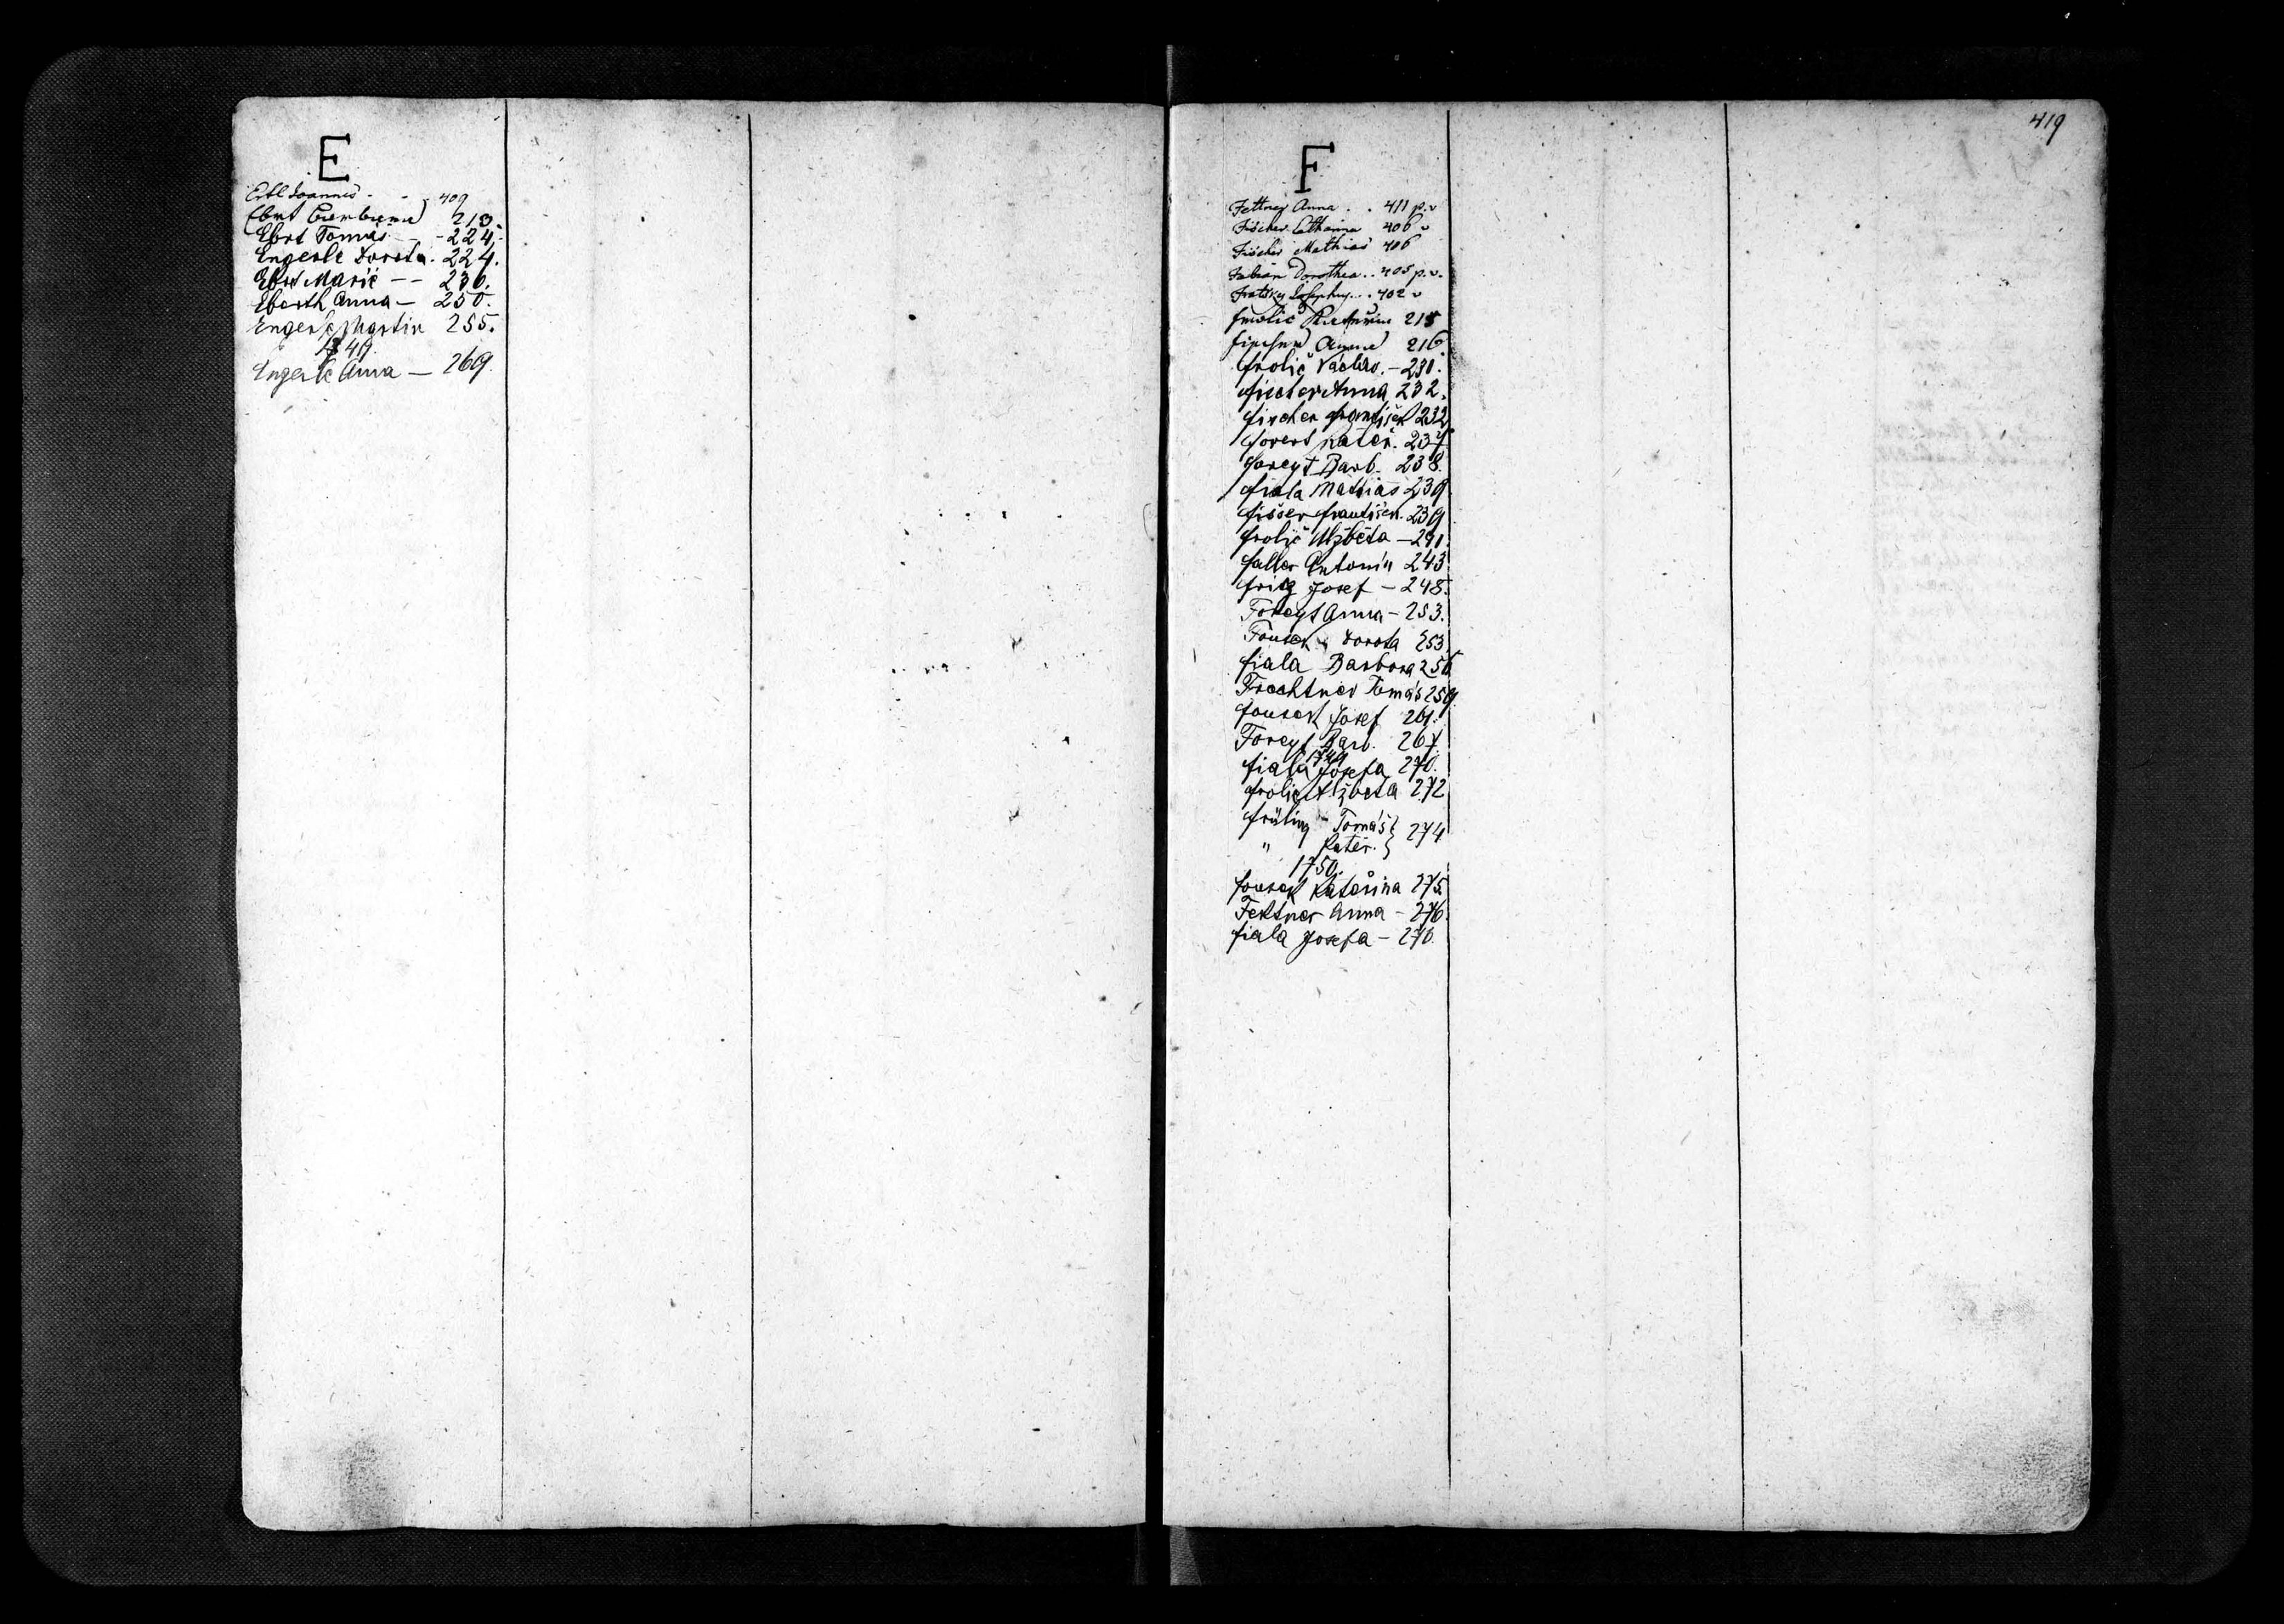 E
Ertl Joannes - - 409
Ebrt Barbara 213.
Ebrt Tomáš - 224.
Engerle Dorota. 224.
Ebrt Marie -- 230.
Eberth Anna — 250.
Engerle Martin 255.
1749
Engerle Anna — 269.
419
F
Fettner Anna . . 411 p.v
Fischer Catharina 406 v
Fischer Mathias 406
Fabian Dorothea .. 405 p.v.
Josephus ... 402 v
frolic 215
Anna 216.
frolič Václav. — 230.
fischer Anna 232.
fischer františek 232
Kateř. 237
foreyt Barb. 238.
fiala Mathias 239
fišser františek. 239
frolič Alžběta — 241.
faller Antonín 243
fritz Josef — 248.
Foreyt Anna — 253.
Fousek Dorota 253.
fiala Barbora 256
Frechtner Tomáš 259.
fousek Josef 261.
Foreyt Barb. 267.
1749
fiala Josefa 270.
frolič Alžběta 272
früling Tomáš } 274
" Kateř. }
1750.
fousek Kateřina 275.
Fektner Anna — 276.
fiala Josefa — 276.